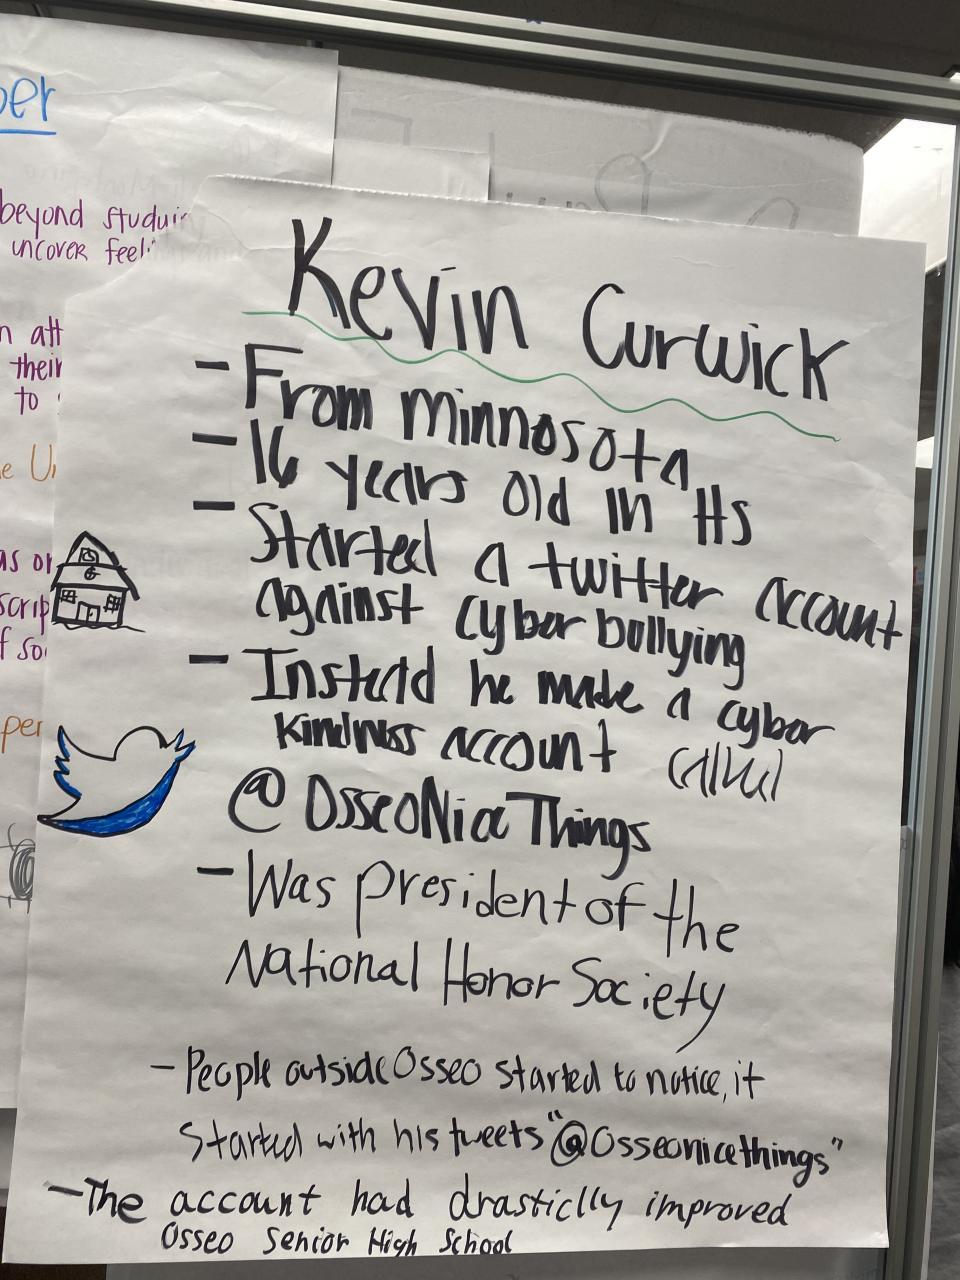 ber
beyond studyin
uncover feeli
n att
their
to
e Un
as or
scrip
f so
per
Kevin Curwick
- From Minnosota
- 16 years old in HS
- Started a twitter account
against cyber bollying
- Instead he made a cyber
kindness account called
@OsseoNiceThings
- Was president of the
National Honor Society
- People outside Osseo started to notice, it
Started with his tweets "@Osseonicethings"
- The account had drasticlly improved
Osseo Senior High School